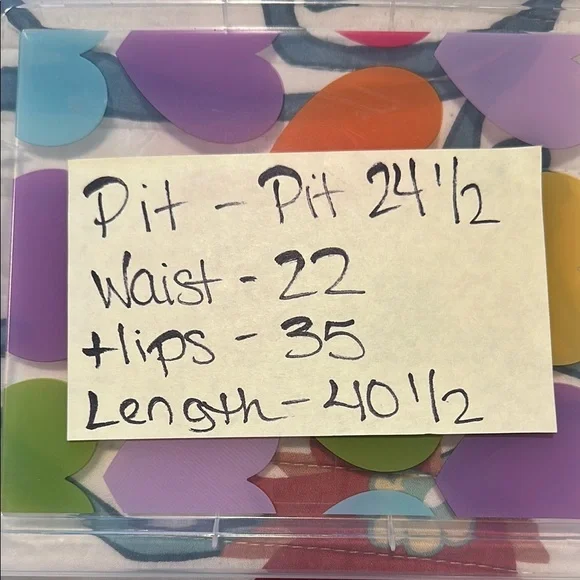 Pit - Pit 24 1/2
Waist - 22
Hips - 35
Length - 40 1/2